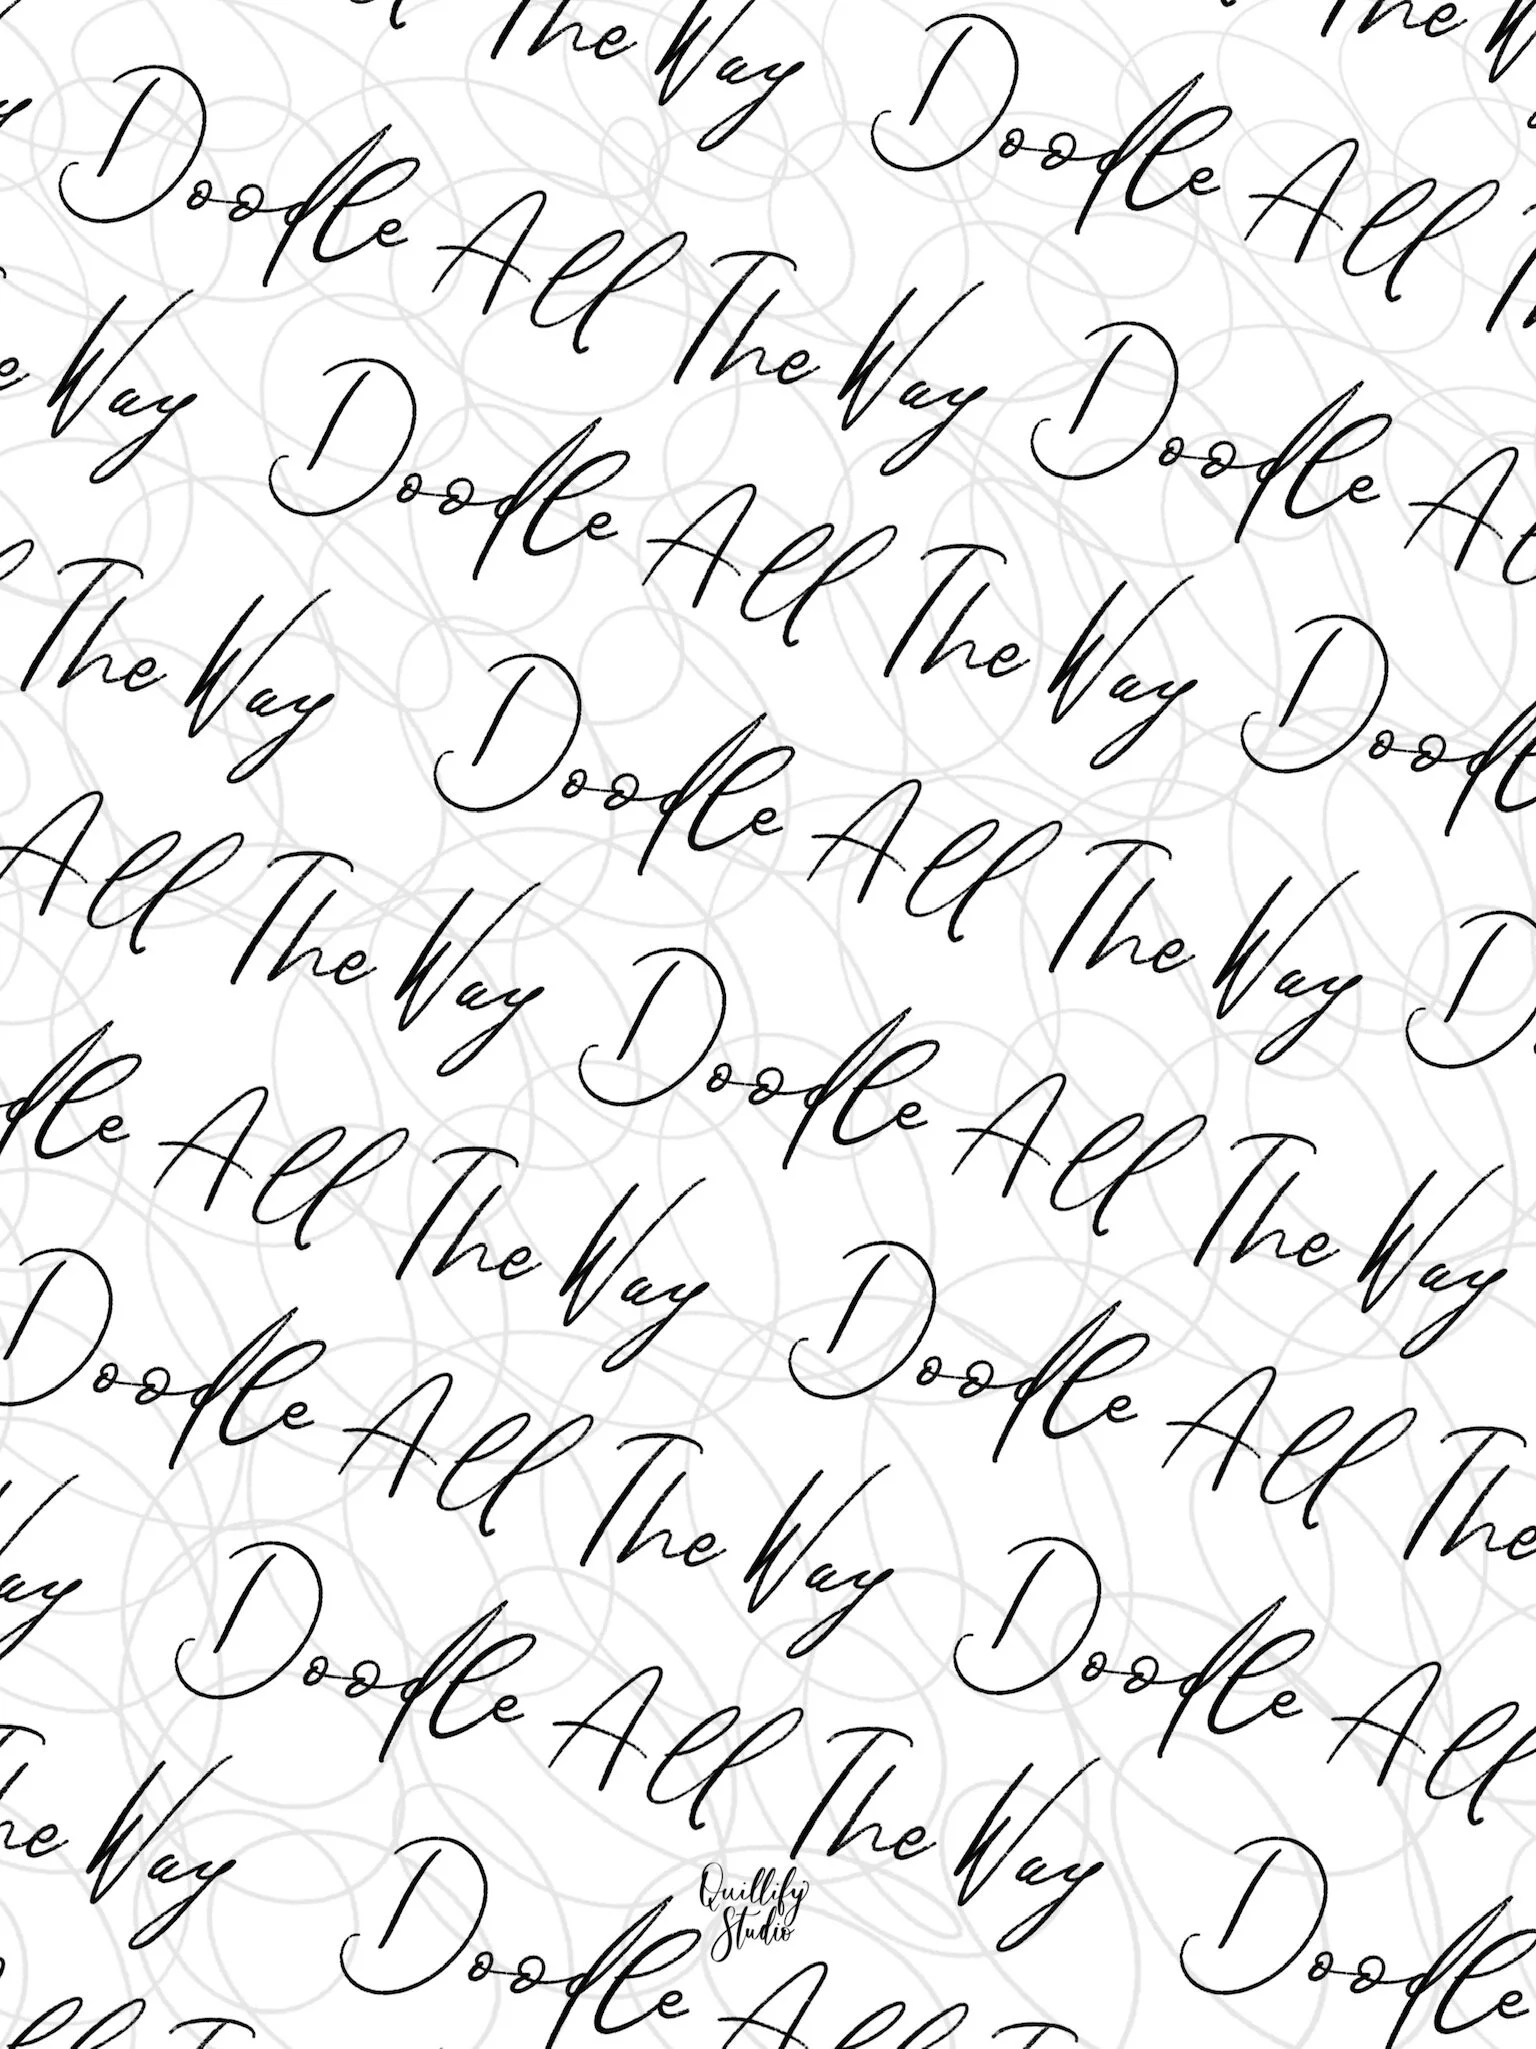 The W
The Way Doodle All T
y Doodle All The Way Doodle Al
e Way Doodle All The Way Doodl
l The Way Doodle All The Way D
All The Way Doodle All The Way
odle All The Way Doodle All The
Doodle All The Way Doodle All
Way Doodle All The Way Doodle
The Way Doodle All T
ll T
Quillify
Studio